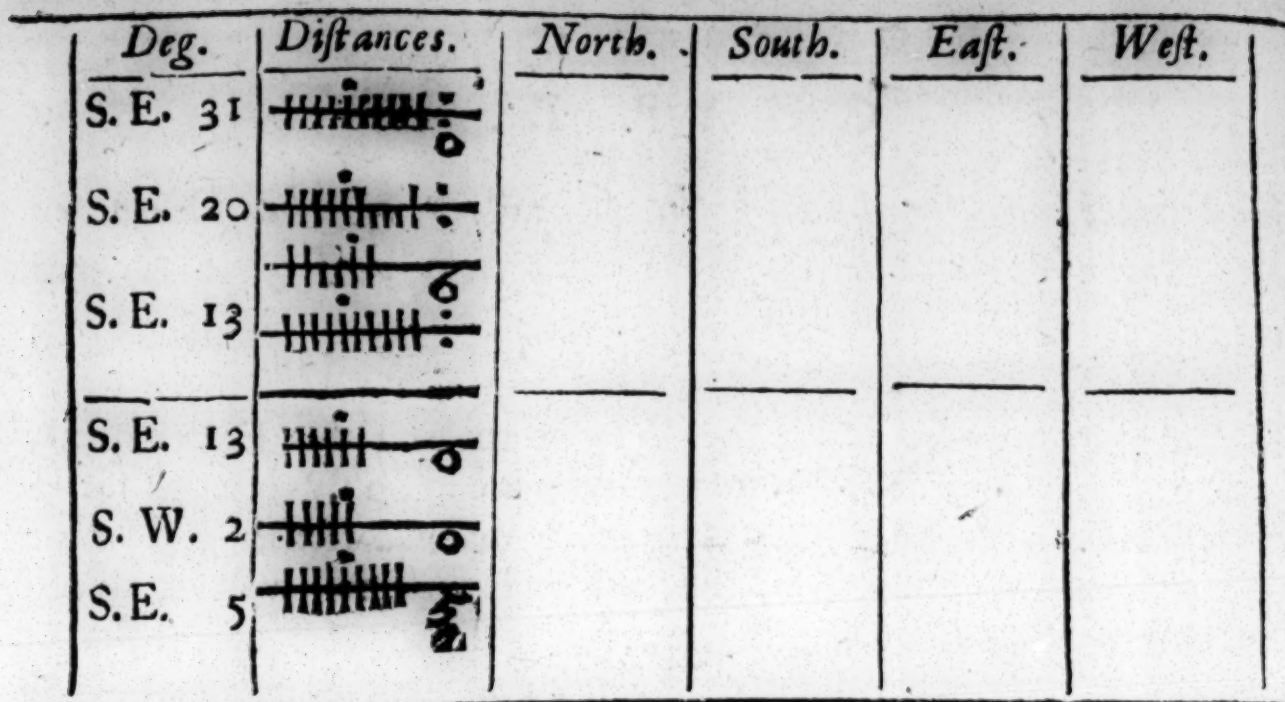 Deg. Diſtances. North. South. Eaſt. Weſt.
S. E. 31
S. E. 20
S. E. 13
S. E. 13
S. W. 2
S. E. 5